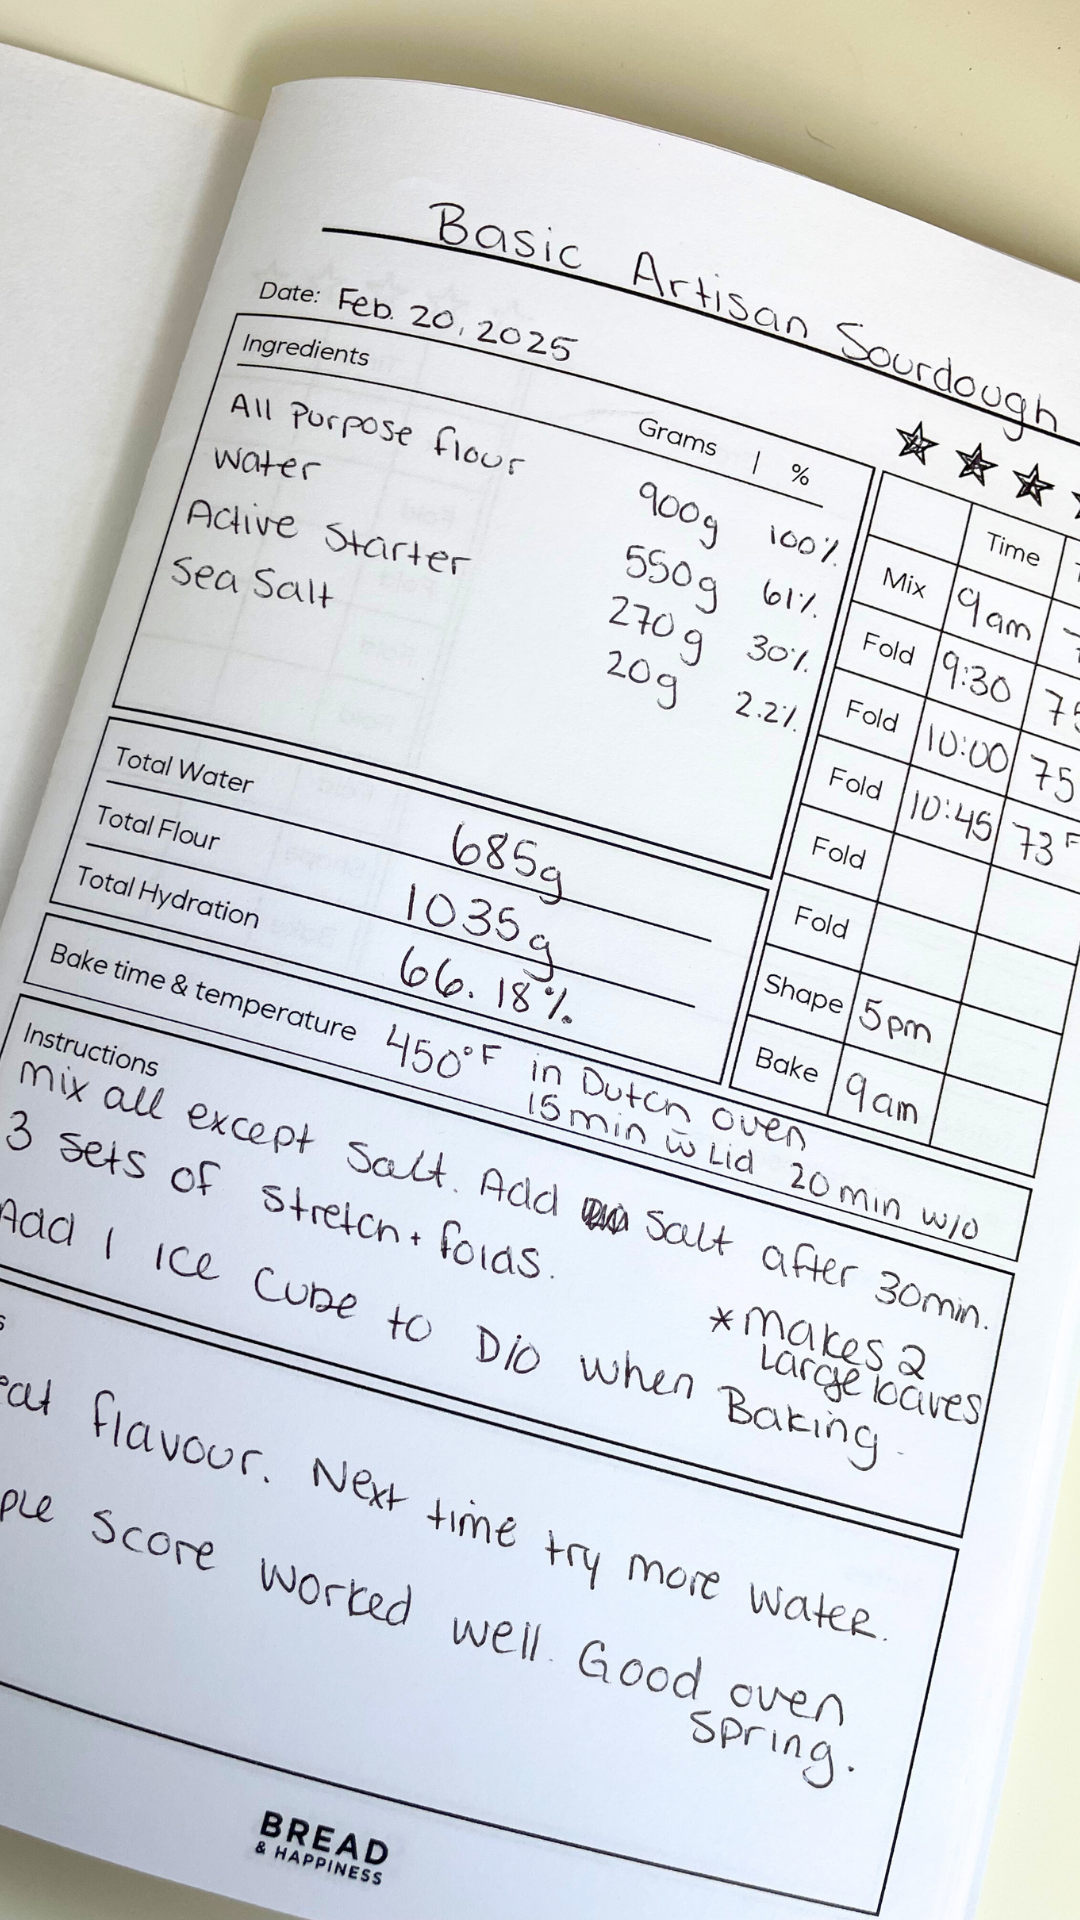 Basic Artisan Sourdough
Date: Feb. 20, 2025
Ingredients Grams | %
All Purpose flour 900g 100%
Water 550g 61%
Active Starter 270g 30%
Sea Salt 20g 2.2%
Total Water 685g
Total Flour 1035g
Total Hydration 66.18%
Time
Mix 9am
Fold 9:30 75
Fold 10:00 75
Fold 10:45 73 F
Fold
Fold
Shape 5pm
Bake 9am
Bake time & temperature 450°F in Dutch oven
15min w Lid 20 min w/o
Instructions
Mix all except Salt. Add Salt after 30min.
3 sets of stretch + folds.
*Makes 2
Large loaves
Add 1 ice cube to D/O when Baking.
flavour. Next time try more water.
score worked well. Good oven
spring.
BREAD
& HAPPINESS